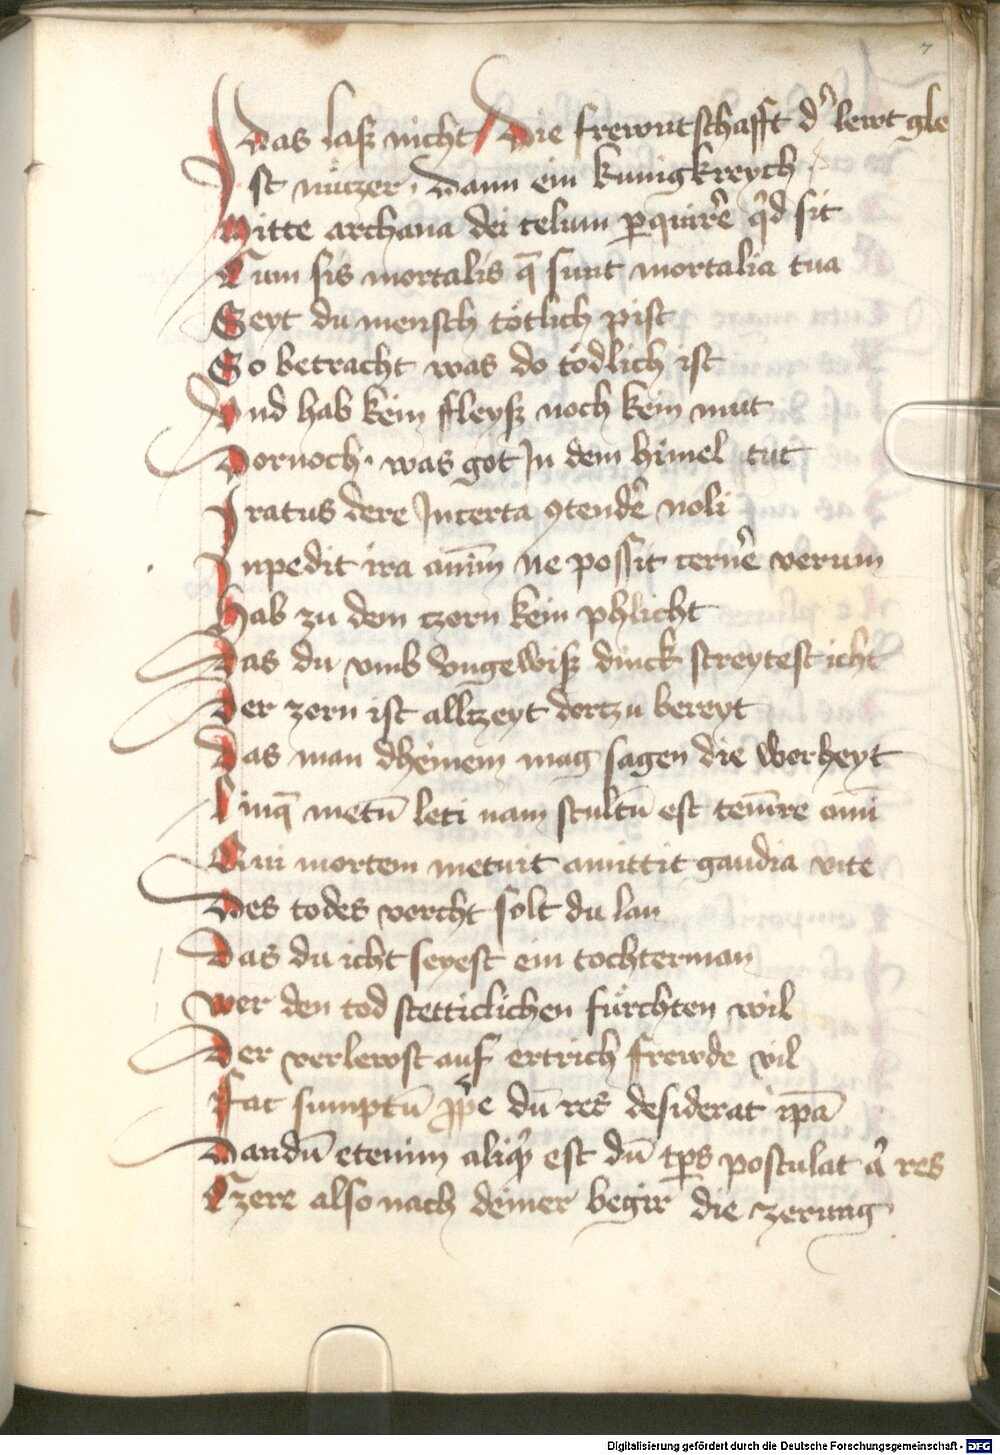 7
Das laß nicht / Die frewntschafft d' lewt gle
Ist nüczer · Dann ein kunigkreych
Mitte archana dei celum perquire' q'd sit
Cum sis mortalis q̄ sunt mortalia cura
Seyt du mensch tötlich pist
So betracht was do tödlich ist
Vnd hab kein ffleyß noch kein mut
Dornoch · was got In dem himel tut
Iratus dere Incerta ꝯtende' noli
Inpedit ira animū ne possit cerne' verum
Hab zu dem czorn kein phlicht
Das du vmb vngewiß dinck streytest icht
Der zorn ist allczeyt dorczu bereyt
Das man dheinem mag sagen die worheyt
Linq̄ metū leti nam stultū est tem̄re om̄i
Qui mortem metuit amittit gaudia vite
Des todes vorcht solt du lan
Das du icht seyest ein tochterman
wer den tod stetticlichen fürchten wil
Der verlewst auf ertrich frewde vil
Fac sumptū ꝓpe dū res desiderat ip̄a
Dandū etenim aliq'd est dū tp̄s postulat a' res
Czere also nach deiner begir die zerung
Digitalisierung gefördert durch die Deutsche Forschungsgemeinschaft - DFG